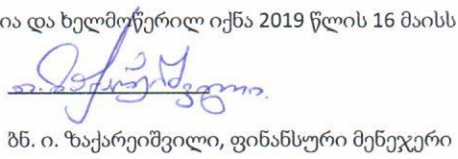 ია და ხელმოწერილ იქნა 2019 წლის 16 მაისს
ი. ზაქარეიშვილი.
ბნ. ი. ზაქარეიშვილი, ფინანსური მენეჯერი